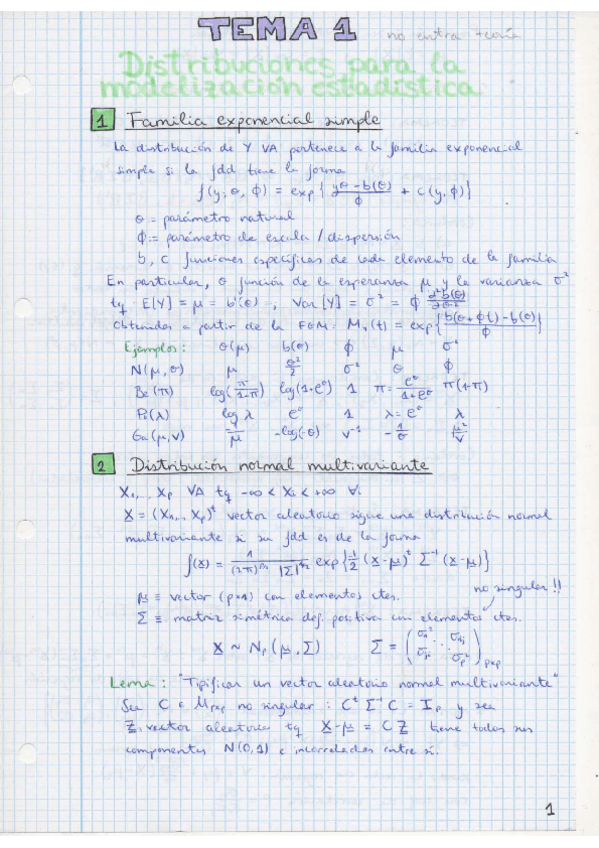 TEMA 1 no entra teoría
Distribuciones para la
modelización estadística
1 Familia exponencial simple
La distribución de Y VA pertenece a la familia exponencial
simple si la fdd tiene la forma
f(y; θ, ϕ) = exp{ (yθ - b(θ))/ϕ + c(y, ϕ)}
θ = parámetro natural
ϕ = parámetro de escala / dispersión
b, c funciones específicas de cada elemento de la familia
En particular, θ función de la esperanza μ, y la varianza σ²
tq E[Y] = μ = b'(θ), Var[Y] = σ² = ϕ ∂²b(θ)/∂θ²
Obtenidas a partir de la FGM: M_Y(t) = exp{ (b(θ+ϕt) - b(θ))/ϕ }
Ejemplos: θ(μ) b(θ) ϕ μ σ²
N(μ, σ) μ θ²/2 σ² θ ϕ
Be(π) log(π/(1-π)) log(1+e^θ) 1 π = e^θ/(1+e^θ) π(1-π)
Po(λ) log λ e^θ 1 λ = e^θ λ
Ga(μ, ν) -1/μ -log(-θ) ν⁻¹ -1/θ μ²/ν
2 Distribución normal multivariante
X₁, ... X_p VA tq -∞ < Xi < +∞ ∀i
X = (X₁, ... X_p)^t vector aleatorio sigue una distribución normal
multivariante si su fdd es de la forma
f(x) = 1/((2π)^{p/2} |Σ|^{1/2}) exp{-1/2 (x-μ)^t Σ⁻¹ (x-μ)}
μ ≡ vector (p×1) con elementos ctes. no singular!!
Σ ≡ matriz simétrica def. positiva con elementos ctes.
X ~ N_p(μ, Σ) Σ = (σ₁² σ_ij σ_ji σ_p²)_{p×p}
Lema: "Tipificar un vector aleatorio normal multivariante"
Sea C ∈ M_{p×p} no singular : C^t Σ⁻¹ C = I_p y sea
Z vector aleatorio tq X-μ = C Z tiene todas sus
componentes N(0,1) e incorreladas entre sí.
1